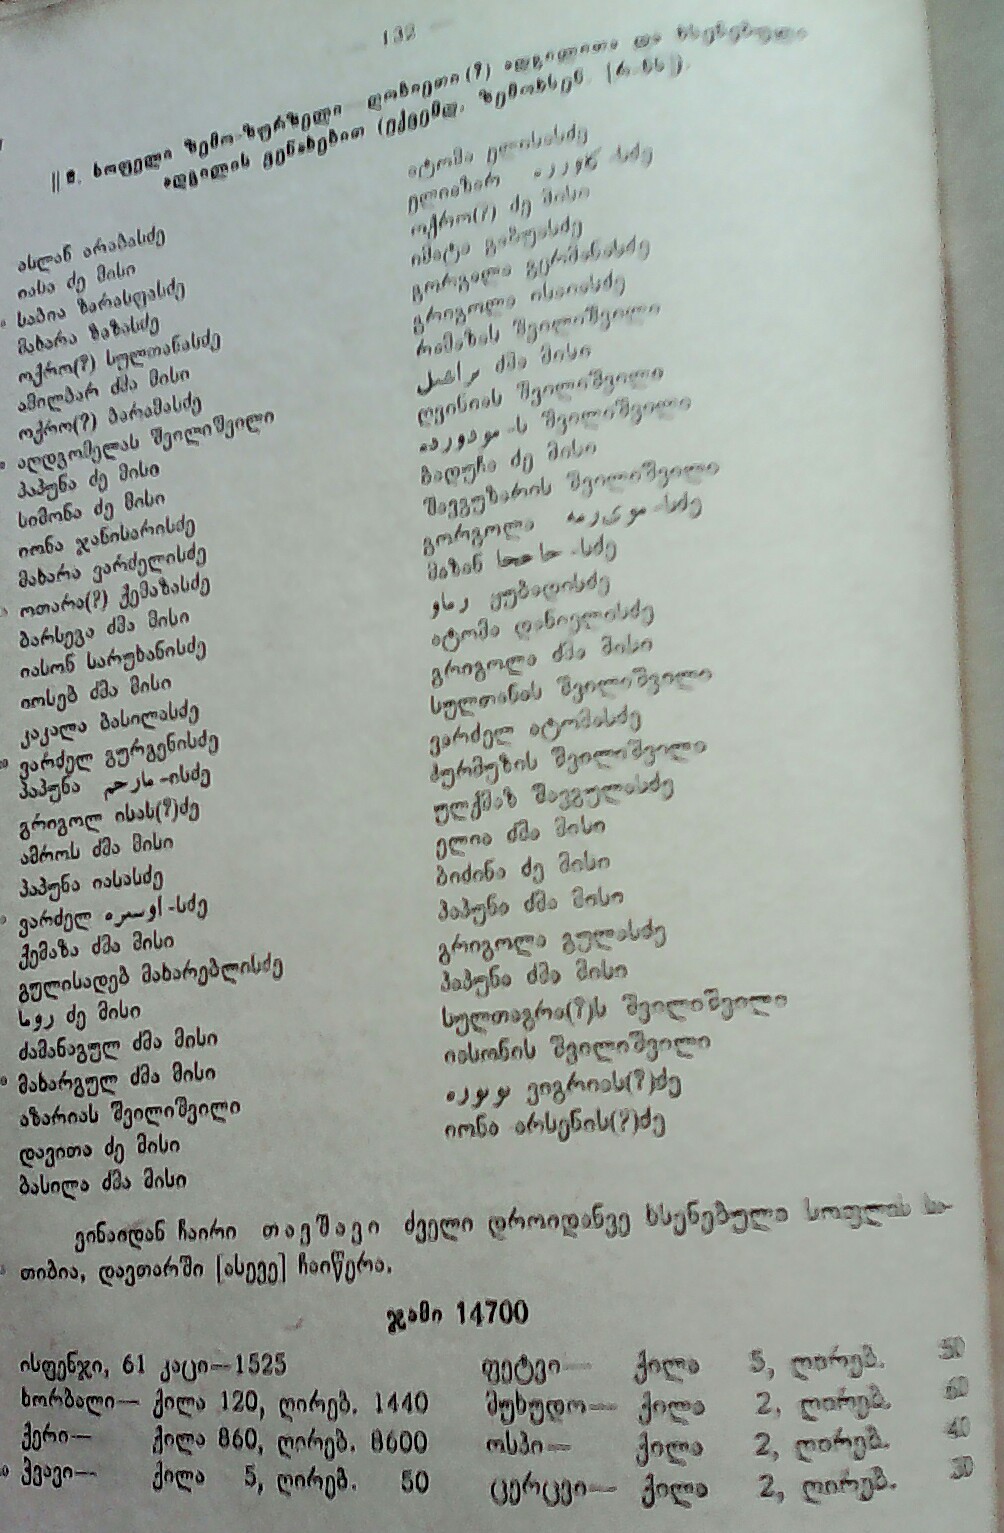 132
|| 8. სოფელი ზემო-ზურზელი ღოჩიეთი (?) ადგილითა და ხსენებული
ადგილის ვენახებით (ექვემდ. ზემოხსენ. [რ-ნს]).
ასლან არაბასძე
იასა ძე მისი
საბია ზარასფასძე
მახარა ზაზასძე
ოქრო(?) სულთანასძე
ამილბარ ძმა მისი
ოქრო(?) ბარამასძე
აღდგომელას შვილიშვილი
პაპუნა ძე მისი
სიმონა ძე მისი
იონა ჯანისარისძე
მახარა ვარძელისძე
ოთარა(?) ქემაზასძე
ბარსევა ძმა მისი
იასონ სარუხანისძე
იოსებ ძმა მისი
კაკალა ბასილასძე
ვარძელ გურგენისძე
პაპუნა -ისძე
გრიგოლ ისას(?)ძე
ამროს ძმა მისი
პაპუნა იასასძე
ვარძელ -სძე
ქემაზა ძმა მისი
გულისადებ მახარებლისძე
ძე მისი
ძამანაგულ ძმა მისი
მახარგულ ძმა მისი
აზარიას შვილიშვილი
დავითა ძე მისი
ბასილა ძმა მისი
ატომა ელისასძე
ელიაზარ -სძე
ოქრო(?) ძე მისი
იმატა გაზუასძე
გორგალა გერმანასძე
გრიგოლა ისაიასძე
რამაზას შვილიშვილი
ძმა მისი
ღვინიას შვილიშვილი
-ს შვილიშვილი
ბადუჩა ძე მისი
შავგუზარის შვილიშვილი
გორგოლა -სძე
მაზან -სძე
ყუბადისძე
ატომა დანიელისძე
გრიგოლა ძმა მისი
სულთანას შვილიშვილი
ვარძელ ატომასძე
ძურმუზის შვილიშვილი
ულქმაზ შავგულასძე
ელია ძმა მისი
ბიძინა ძე მისი
პაპუნა ძმა მისი
გრიგოლა გულასძე
პაპუნა ძმა მისი
სულთაგრა(?)ს შვილიშვილი
იასონის შვილიშვილი
ვიგრიას(?)ძე
იონა არსენის(?)ძე
ვინაიდან ჩაირი თავშავი ძველი დროიდანვე ხსენებული სოფლის სა-
თიბია, დავთარში [ასევე] ჩაიწერა.
ჯამი 14700
ისფენჯი, 61 კაცი—1525
ხორბალი— ქილა 120, ღირებ. 1440
ქერი— ქილა 860, ღირებ. 8600
ჭვავი— ქილა 5, ღირებ. 50
ფეტვი— ქილა 5, ღირებ. 50
მუხუდო— ქილა 2, ღირებ. 60
ოსპი— ქილა 2, ღირებ. 40
ცერცვი— ქილა 2, ღირებ. 30